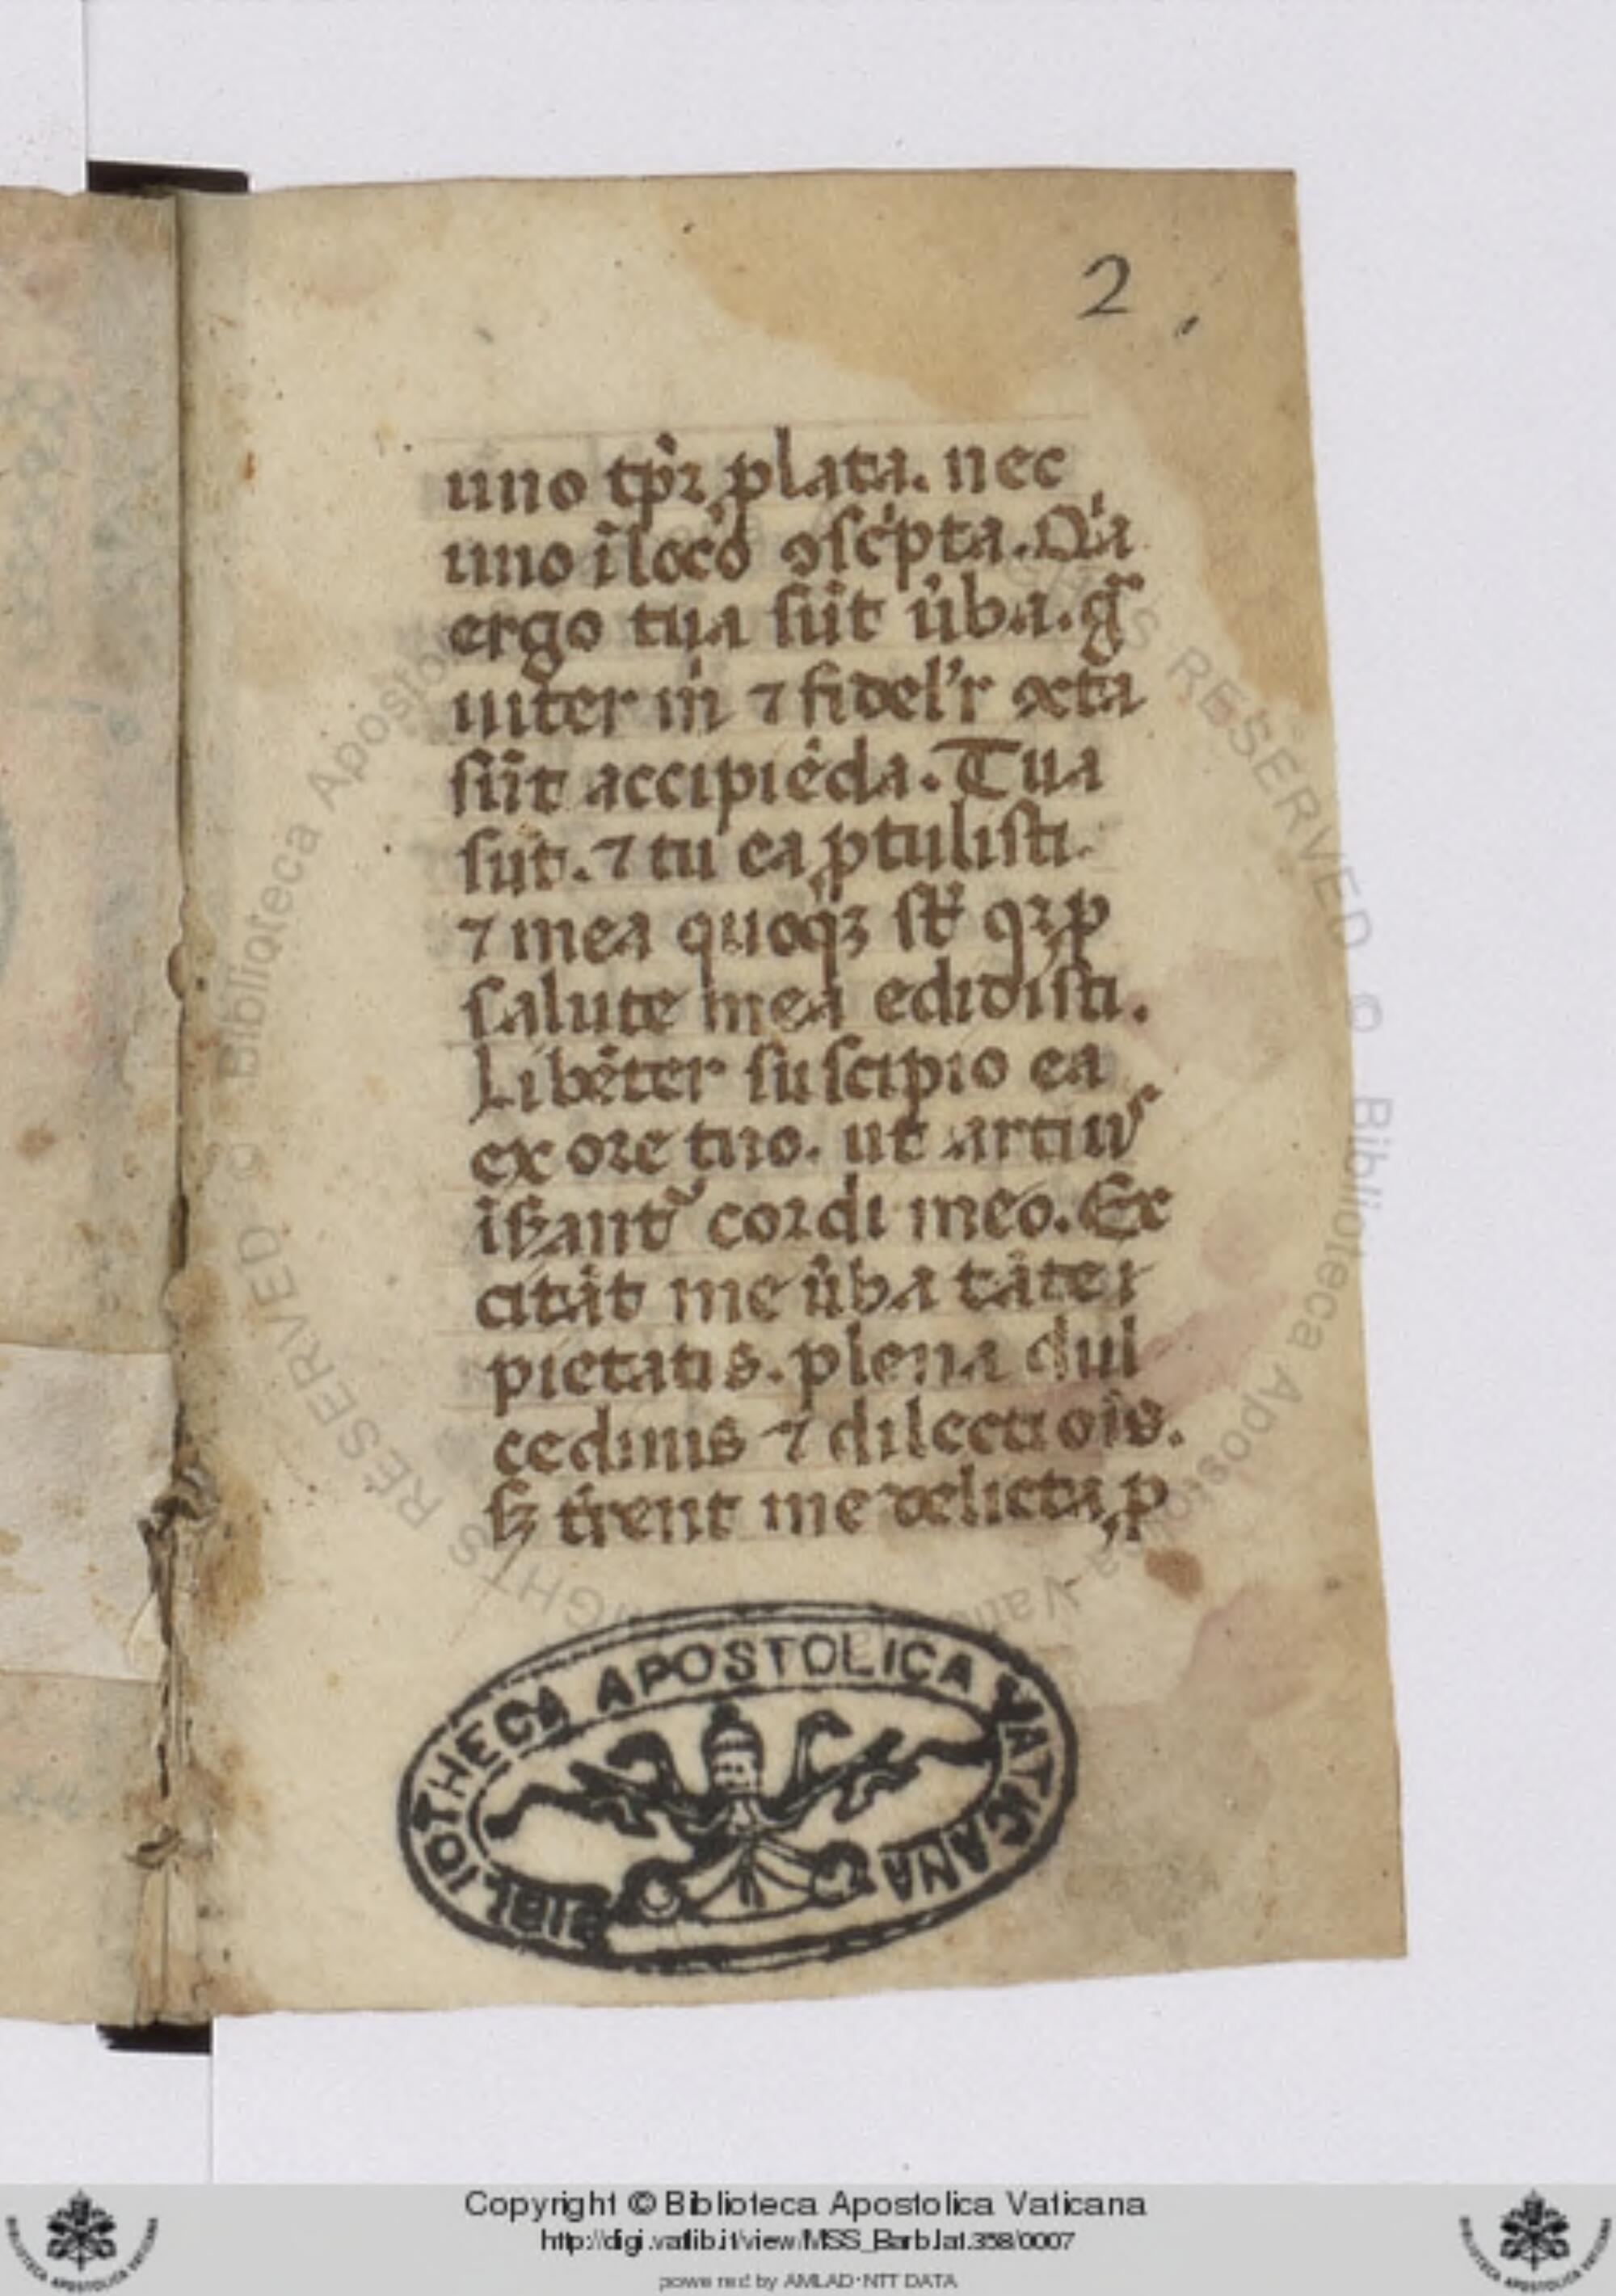 2
uno tp̄r ꝓlata. nec
uno ī loco ꝯsc̍pta. Q̍a
ergo tua sūt u̍ba. gͣ
uiter m̍ ⁊ fidel'r ꝯ
sūt accipiēda. Tua
sūt. ⁊ tu ea ꝓtulisti
⁊ mea quoqꝫ st̄ qꝛ ꝓ
salute mea edidisti.
Libēter suscipio ea
ex ore tuo. ut artius
īhꝫant᷑ cordi meo. Ex
citāt me u̍ba tāte i
pietatis. plena dul
cedinis ⁊ dilectiōis.
sꝫ t̍rent me delicta ꝓ
BIBLIOTHECA APOSTOLICA VATICANA
Copyright © Biblioteca Apostolica Vaticana
http://digi.vatlib.it/view/MSS_Barb.lat.358/0007
powered by AMLAD·NTT DATA